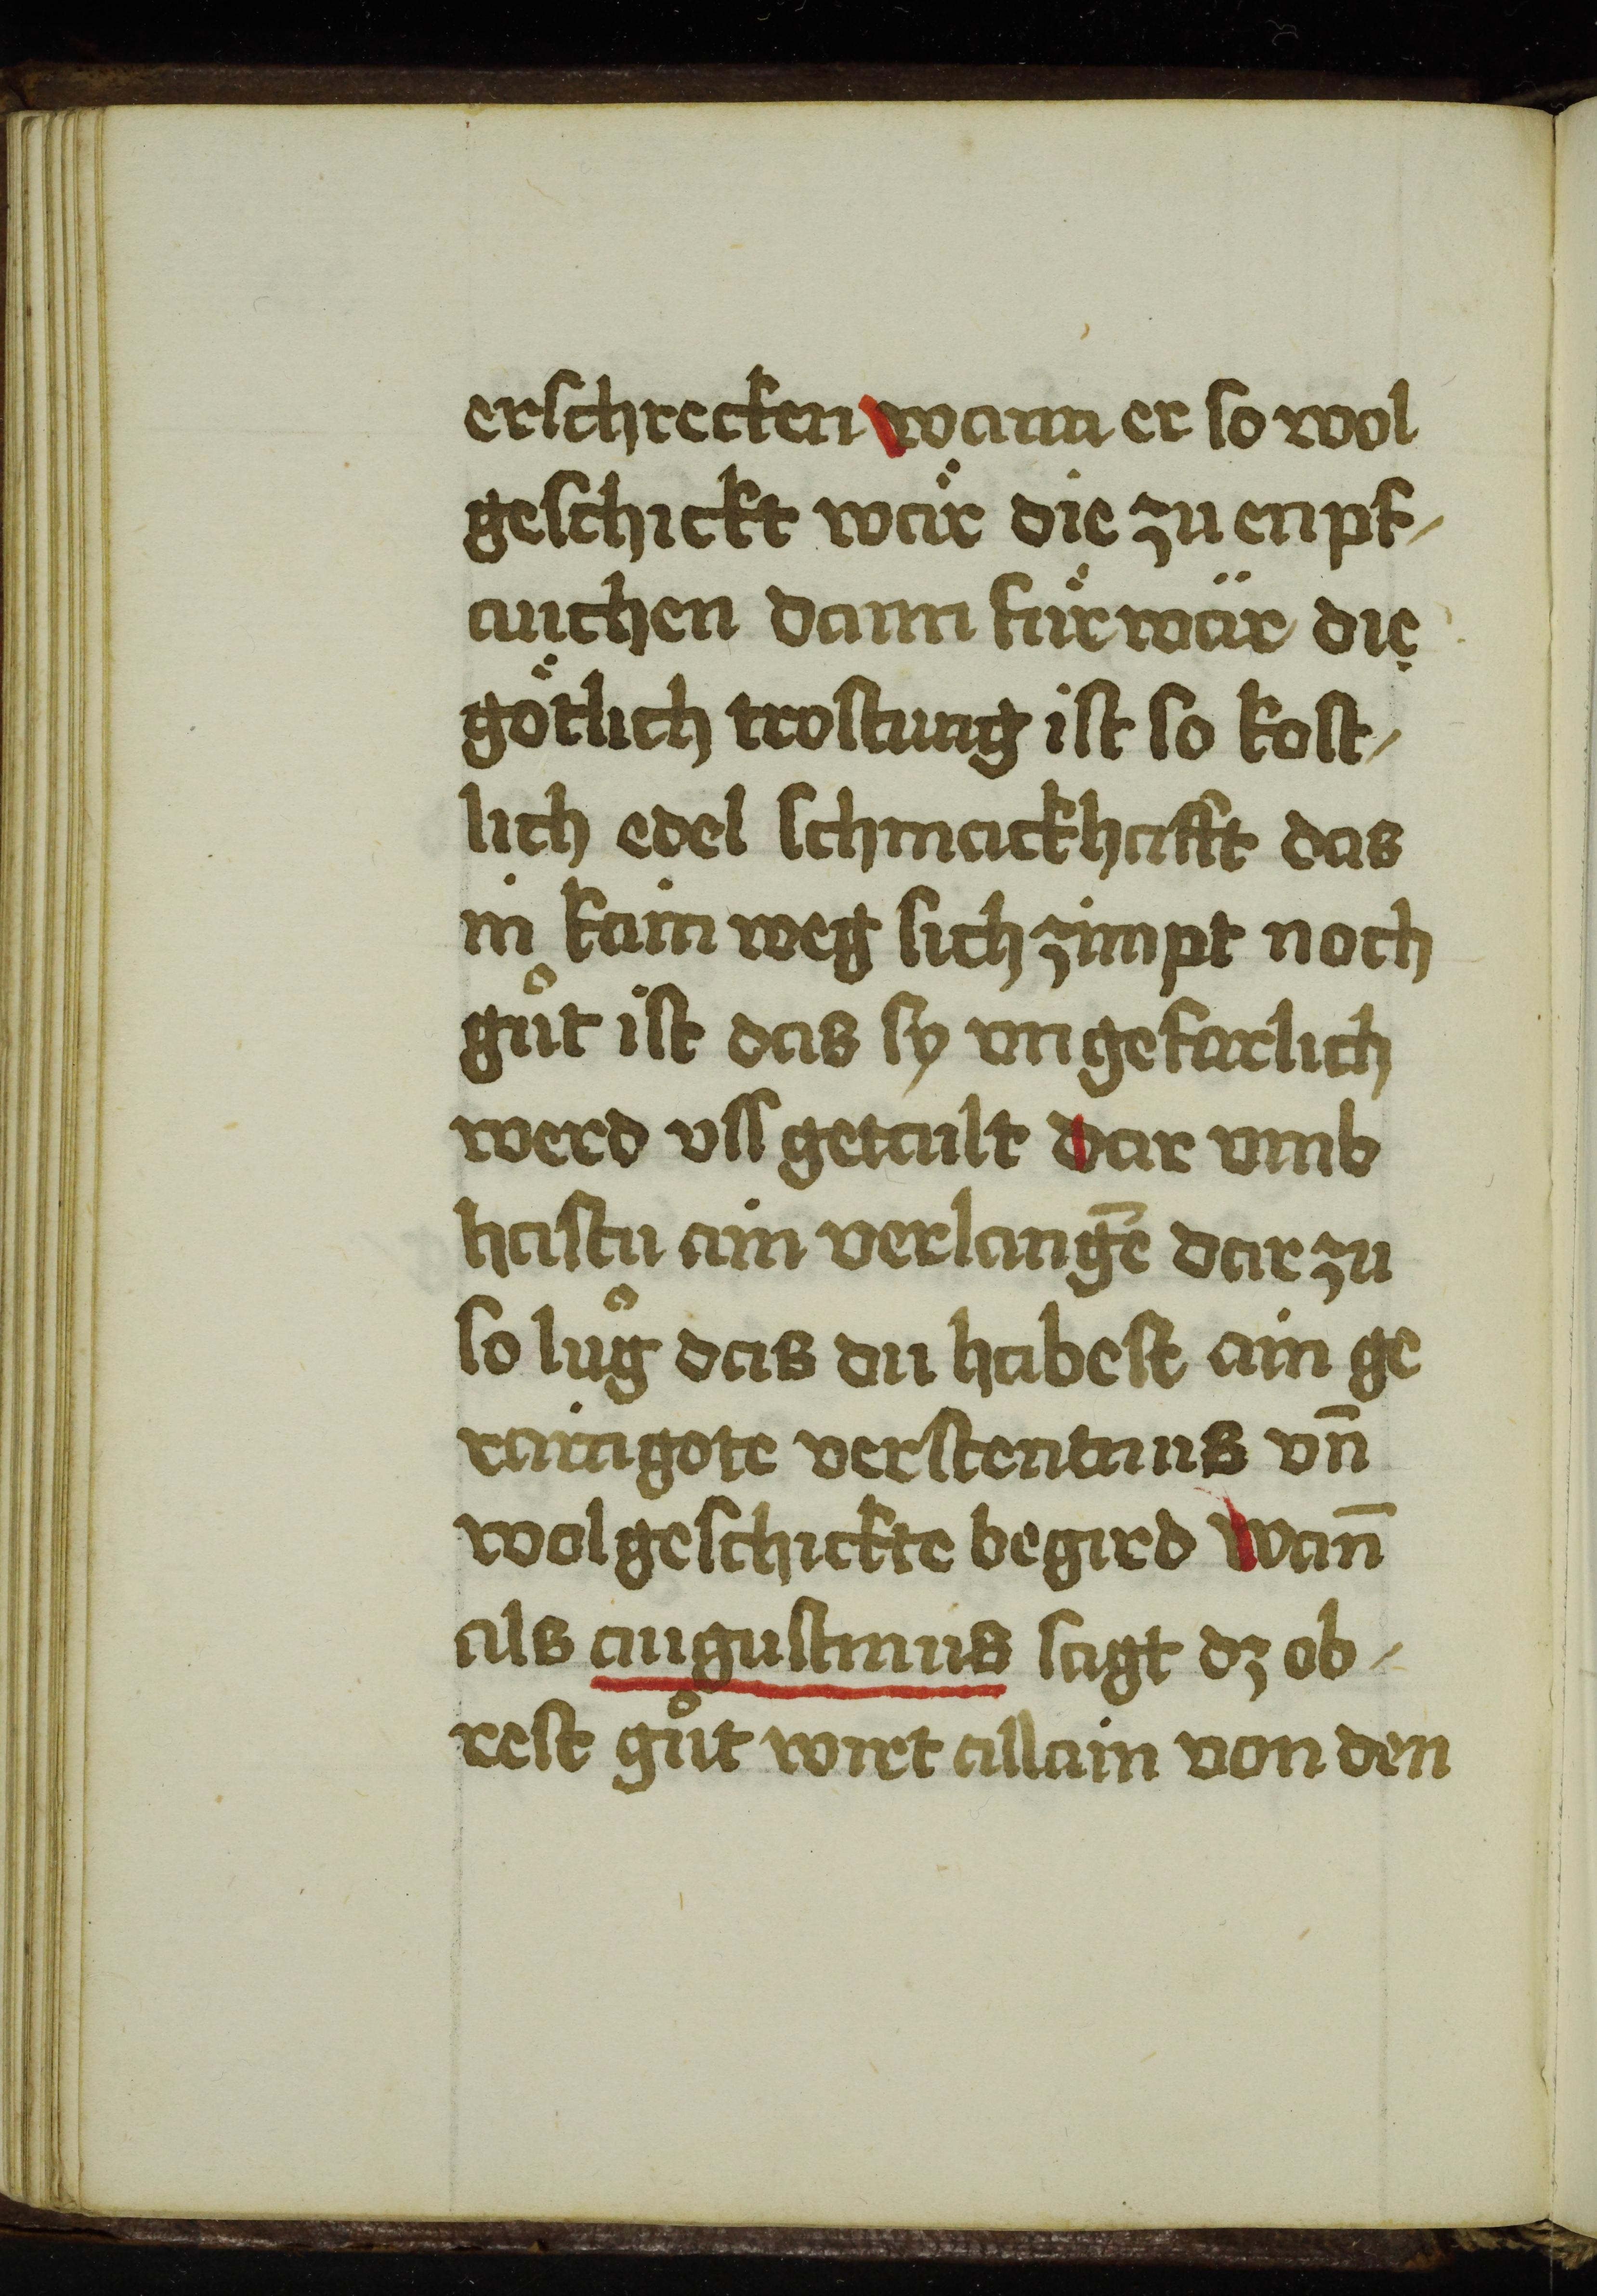 erschrecken wann er so wol
geschickt wär die zu enpf⸗
auchen dann fürwär die
götlich trostung ist so kost⸗
lich edel schmackhafft das
in kain weg sich zimpt noch
gůt ist das sy vngefarlich
werd vss getailt dar vmb
hastu ain verlangē dar zu
so lůg das du habest ain ge
rainigote verstentnus vn̄
wolgeschickte begird wan̄
als augustinus sagt dz ob⸗
rest gůt wirt allain von den